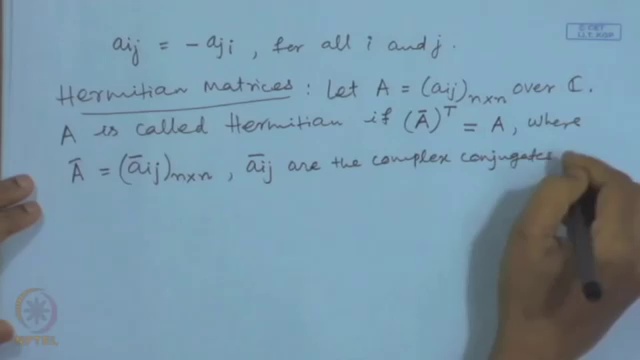 © CET
I.I.T. KGP
aij = - aji , for all i and j.
Hermitian Matrices : Let A = (aij)n×n over ℂ.
A is called Hermitian if (Ā)ᵀ = A, where
Ā = (āij)n×n , āij are the complex conjugates
NPTEL